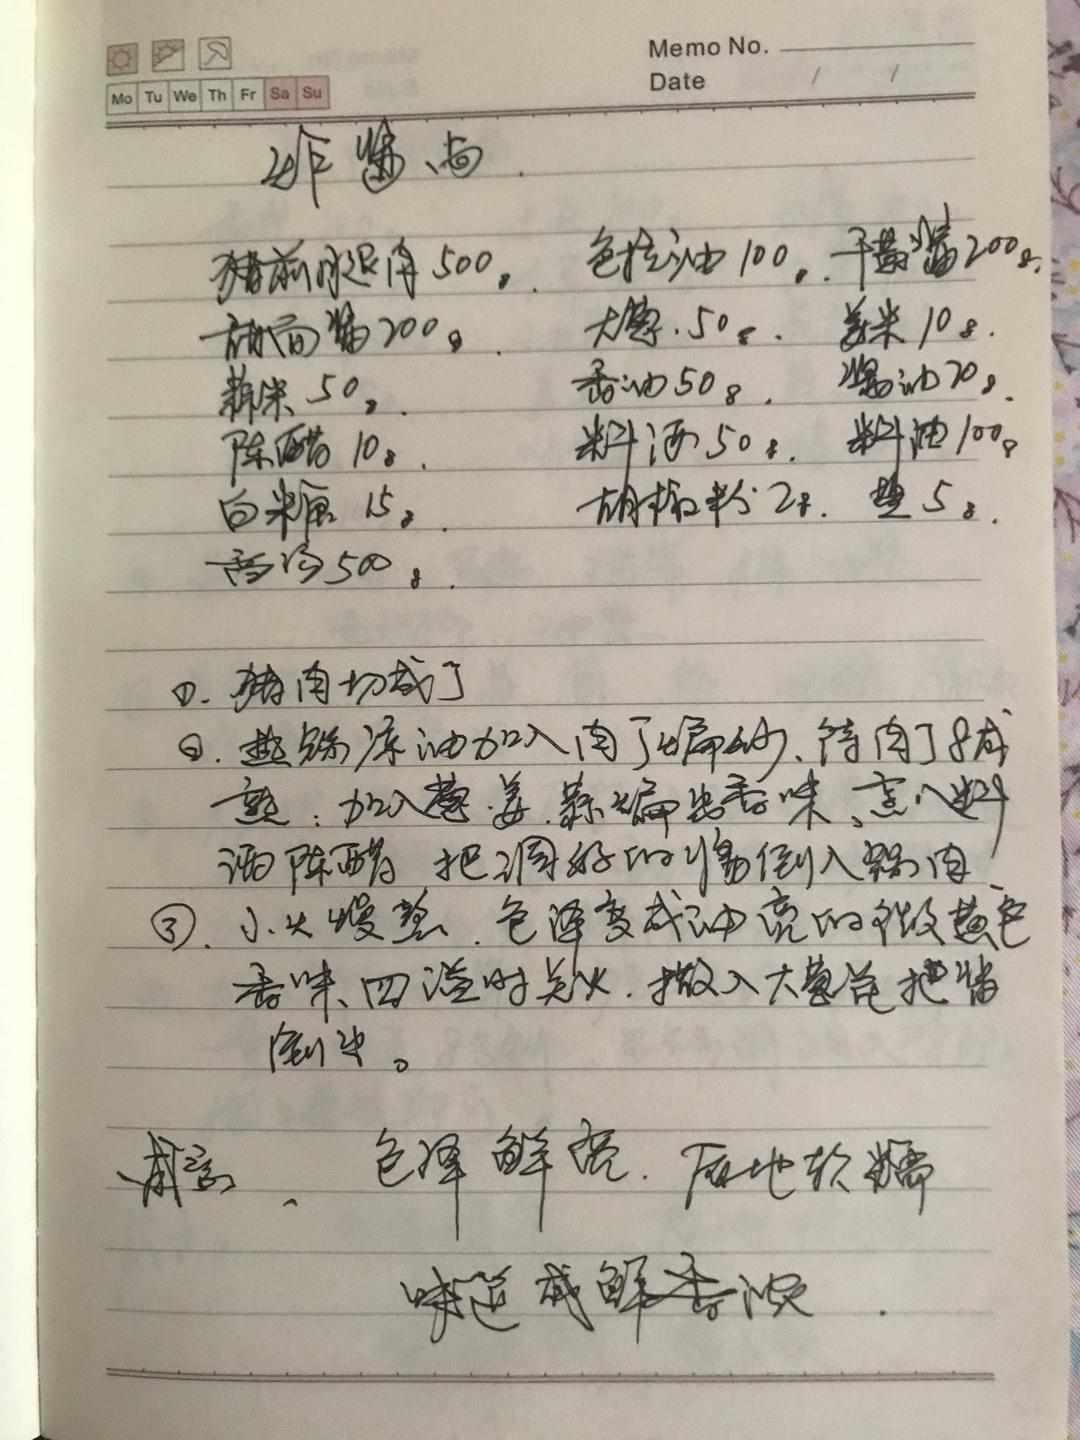 Memo No.
Date / /
Mo Tu We Th Fr Sa Su
炸酱面.
猪前腿肉500g. 色拉油100g. 干黄酱200g.
甜面酱200g. 大葱.50g. 姜米10g.
蒜米50g. 香油50g. 酱油20g.
陈醋10g. 料酒50g. 料油100g
白糖15g. 胡椒粉2g. 盐5g.
高汤500g.
①. 猪肉切成丁
②. 热锅凉油加入肉丁煸炒、待肉丁8成
熟.加入葱.姜.蒜煸出香味、烹入料
酒陈醋 把调好的酱倒入锅内、
③. 小火慢熬.色泽变成油亮的微黄色
香味、四溢时关火.撒入大葱花把酱
倒出。
色泽鲜亮. 质地软糯
味道咸鲜香浓.